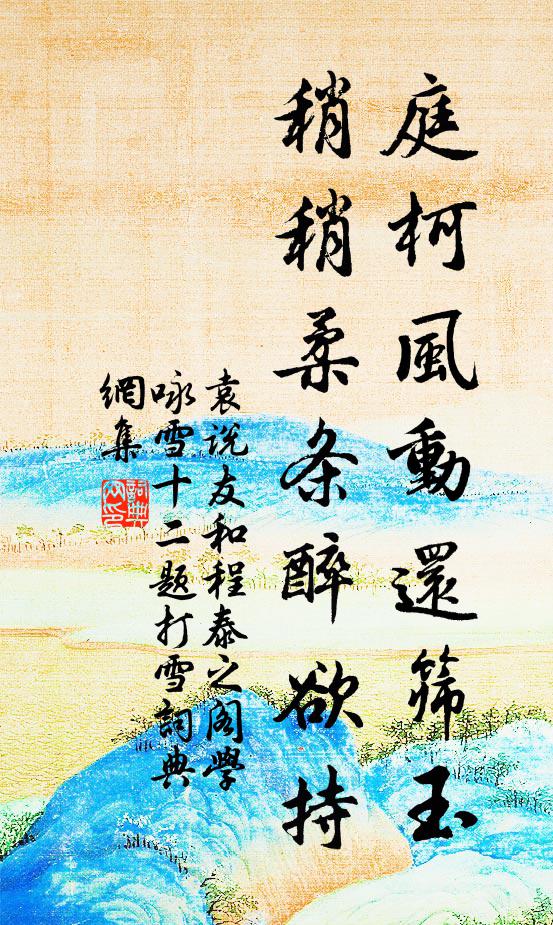 庭柯風動還筛玉
稍稍柔条醉欲持
袁说友和程泰之阁學
咏雪十二题打雪詞典
網集
詞典